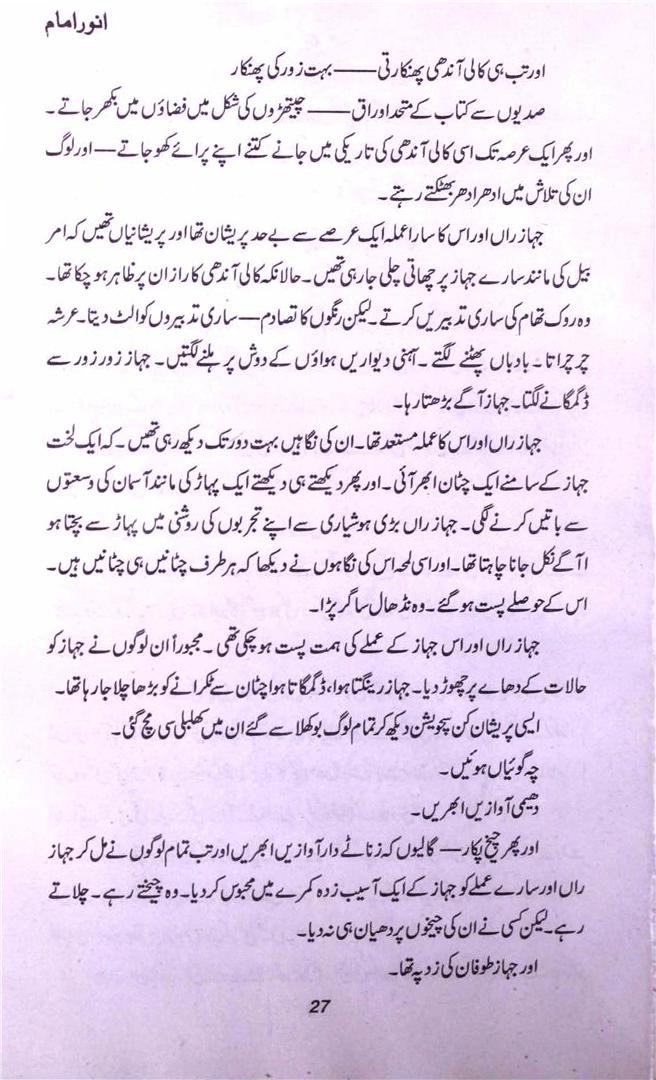 انور امام
اور تب ہی کالی آندھی پھنکارتی —— بہت زور کی پھنکار
صدیوں سے کتاب کے متحد اوراق —— چیتھڑوں کی شکل میں فضاؤں میں بکھر جاتے۔
اور پھر ایک عرصہ تک اسی کالی آندھی کی تاریکی میں جانے کتنے اپنے پرائے کھو جاتے — اور لوگ
ان کی تلاش میں ادھر ادھر بھٹکتے رہتے۔
جہاز راں اور اس کا سارا عملہ ایک عرصے سے بے حد پریشان تھا اور پریشانیاں تھیں کہ امر
بیل کی مانند سارے جہاز پر چھاتی چلی جا رہی تھیں۔ حالانکہ کالی آندھی کا راز ان پر ظاہر ہو چکا تھا۔
وہ روک تھام کی ساری تدبیریں کرتے۔ لیکن رنگوں کا تصادم — ساری تدبیروں کو الٹ دیتا۔ عرشہ
چرچراتا۔ بادباں پھٹنے لگتے۔ آہنی دیواریں ہواؤں کے دوش پر ہلنے لگتیں۔ جہاز زور زور سے
ڈگمگانے لگتا۔ جہاز آگے بڑھتا رہا۔
جہاز راں اور اس کا عملہ مستعد تھا۔ ان کی نگاہیں بہت دور تک دیکھ رہی تھیں۔ کہ ایک لخت
جہاز کے سامنے ایک چٹان ابھر آئی۔ اور پھر دیکھتے ہی دیکھتے ایک پہاڑ کی مانند آسمان کی وسعتوں
سے باتیں کرنے لگی۔ جہاز راں بڑی ہوشیاری سے اپنے تجربوں کی روشنی میں پہاڑ سے بچتا ہو
اآگے نکل جانا چاہتا تھا۔ اور اسی لمحہ اس کی نگاہوں نے دیکھا کہ ہر طرف چٹانیں ہی چٹانیں ہیں۔
اس کے حوصلے پست ہو گئے۔ وہ نڈھال سا گر پڑا۔
جہاز راں اور اس جہاز کے عملے کی ہمت پست ہو چکی تھی۔ مجبوراً ان لوگوں نے جہاز کو
حالات کے دھاے پر چھوڑ دیا۔ جہاز رینگتا ہوا، ڈگمگاتا ہوا چٹان سے ٹکرانے کو بڑھا چلا جا رہا تھا۔
ایسی پریشان کن سچویشن دیکھ کر تمام لوگ بوکھلا سے گئے ان میں کھلبلی سی مچ گئی۔
چہ گوئیاں ہوئیں۔
دھیمی آوازیں ابھریں۔
اور پھر چیخ پکار — گالیوں کہ زناٹے دار آوازیں ابھریں اور تب تمام لوگوں نے مل کر جہاز
راں اور سارے عملے کو جہاز کے ایک آسیب زدہ کمرے میں محبوس کر دیا۔ وہ چیختے رہے۔ چلاتے
رہے۔ لیکن کسی نے ان کی چیخوں پر دھیان ہی نہ دیا۔
اور جہاز طوفان کی زد پہ تھا۔
27